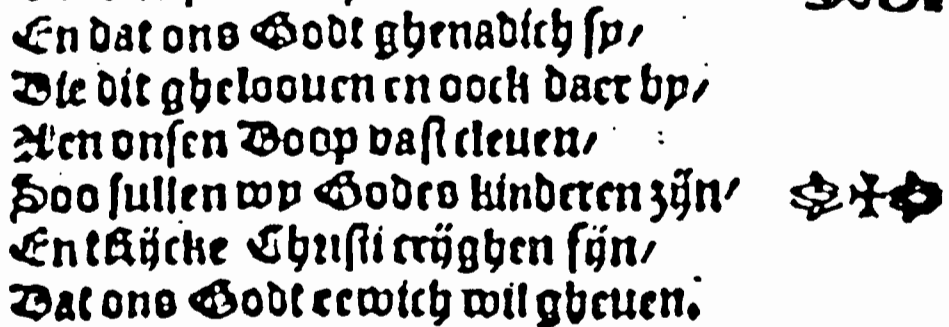 En dat ons Godt ghenadich sy/
Die dit ghelooven en oock daer by/
Aen onsen Doop vast cleven/
Soo sullen wy Godes kinderen zijn/
En t Rijcke Christi crijghen fijn/
Dat ons Godt eewich wil gheven.